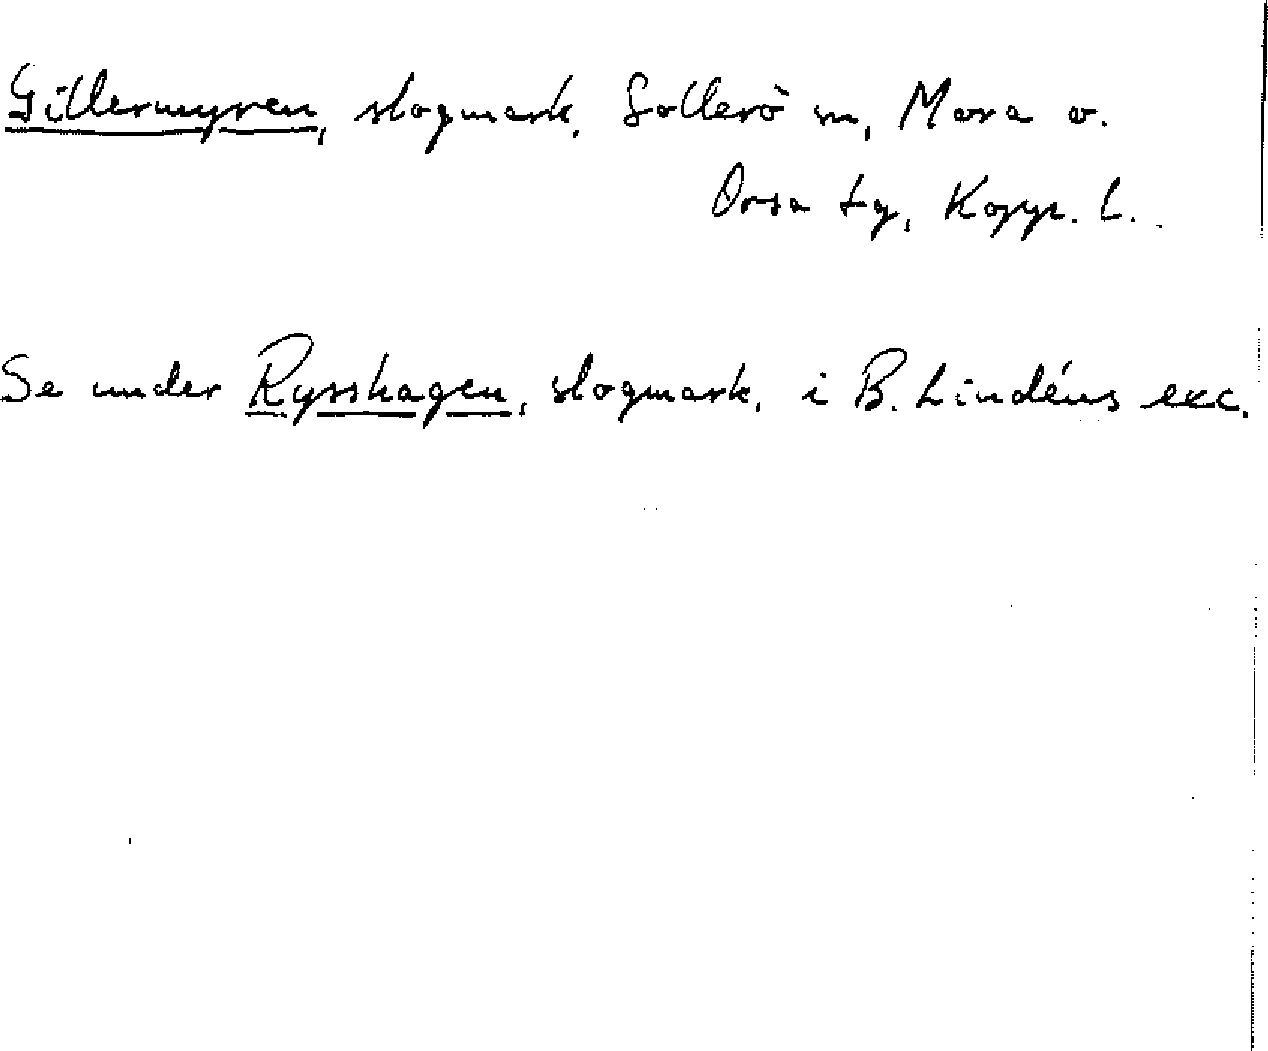 Gillermyren, slogmark, Sollerö sn, Mora o.
Orsa tg, Kopp. l.
Se under Rysshagen, slogmark, i B. Lindéns exc.